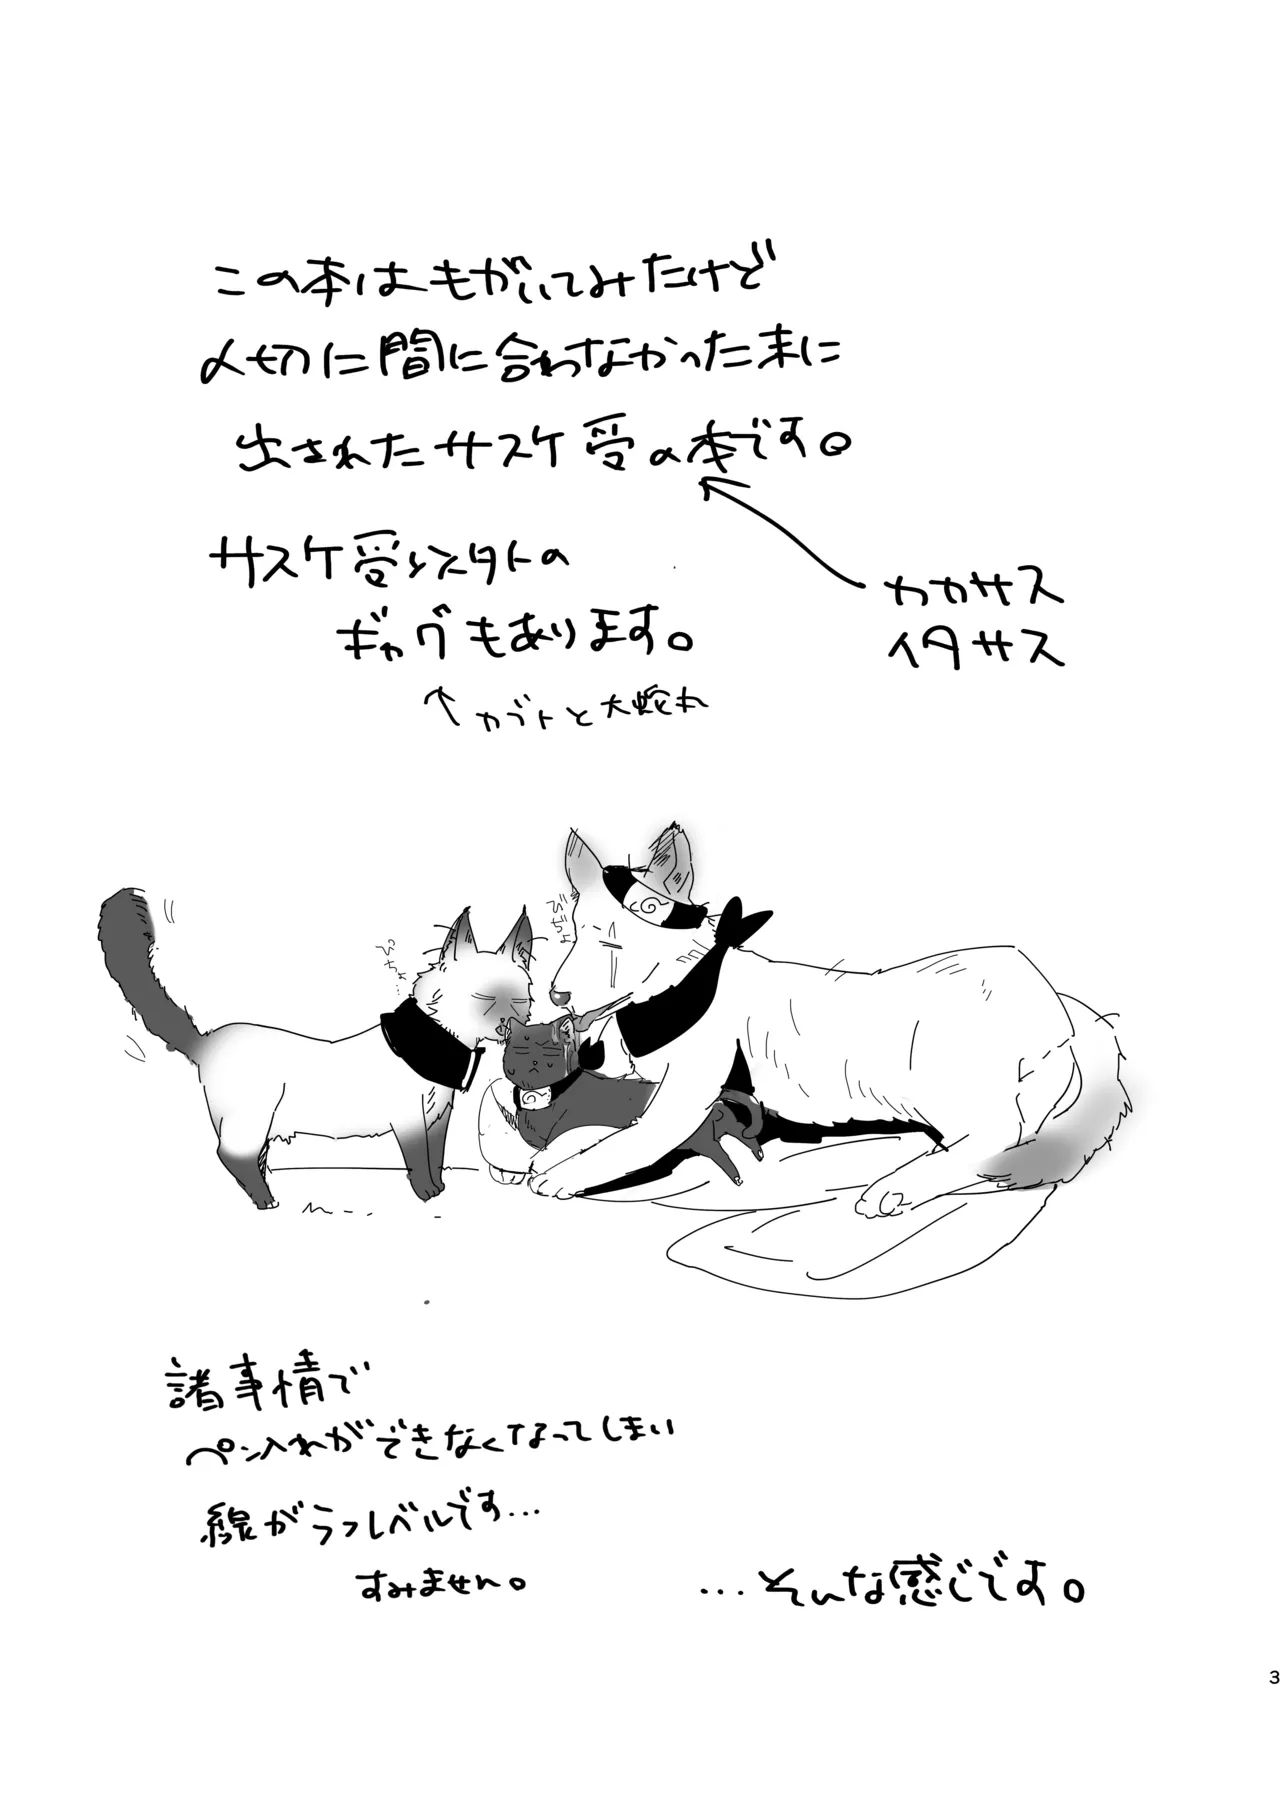 この本はもがいてみたけど
〆切に間に合わなかった末に
出されたサスケ受の本です。
サスケ受以外の
ギャグもあります。
カカサス
イタサス
カブトと大蛇丸
諸事情で
ペン入れができなくなってしまい
線がラフレベルです…
すみません。
…そんな感じです。
3